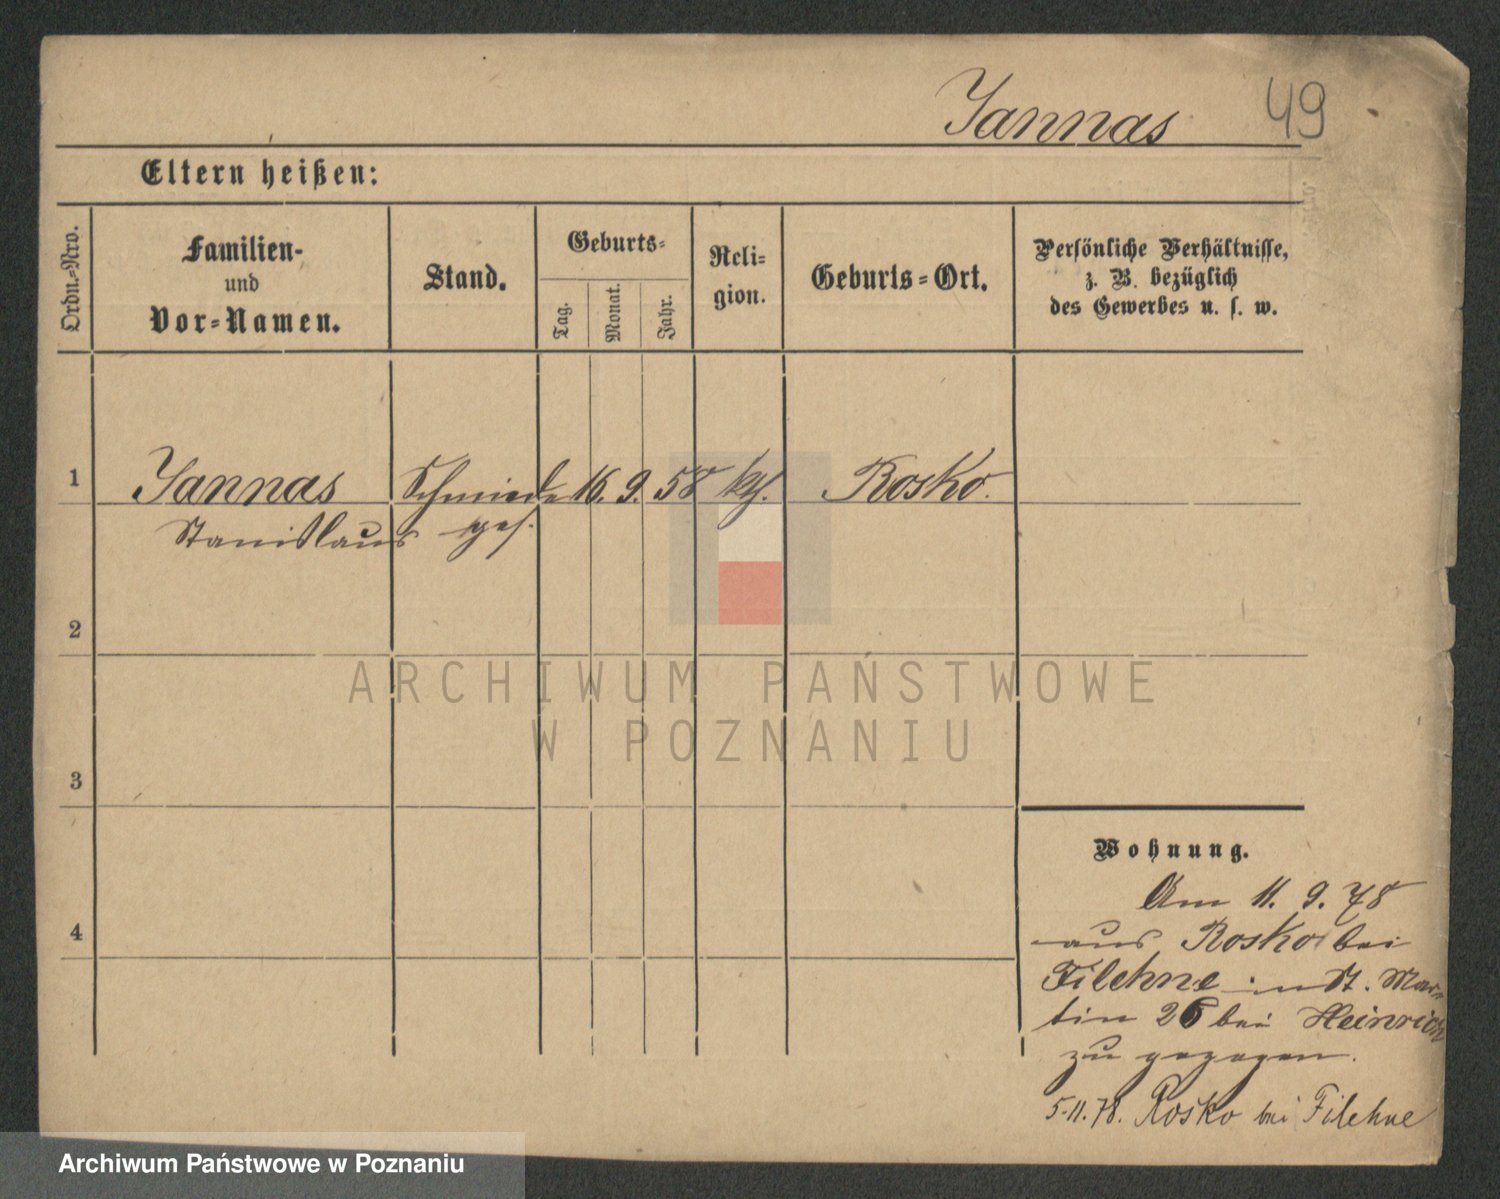 Yannas 49
Eltern heißen:
Ordn.-Nro.
Familien-
und
Vor-Namen.
Stand.
Geburts-
Tag.
Monat.
Jahr.
Reli-
gion.
Geburts-Ort.
Persönliche Verhältnisse,
z. B. bezüglich
des Gewerbes u. s. w.
1 Yannas Schmiede 16. 9. 58 kth. Rosko.
Stanislaus ges.
2
3
4
Wohnung.
Am 11. 9. 78
aus Rosko bei
Filehne in St. Mar-
tin 26 bei Heinrich
zu gezogen.
5.11.78. Rosko bei Filehne
ARCHIWUM PAŃSTWOWE
W POZNANIU
Archiwum Państwowe w Poznaniu